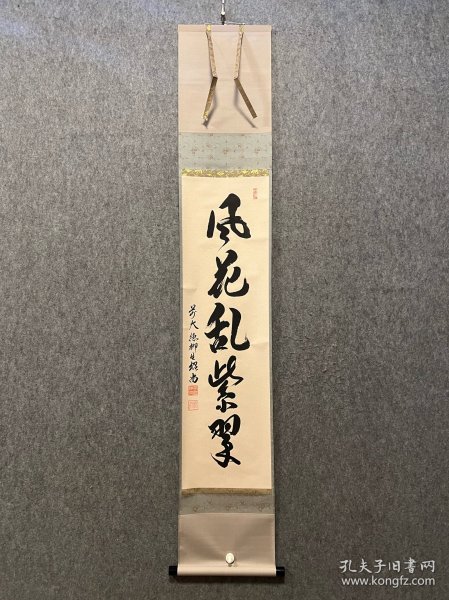 風花乱紫翠
前大徳柳生紹尚
孔夫子旧书网
www.kongfz.com